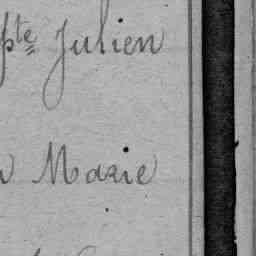 pte Julien
Marie